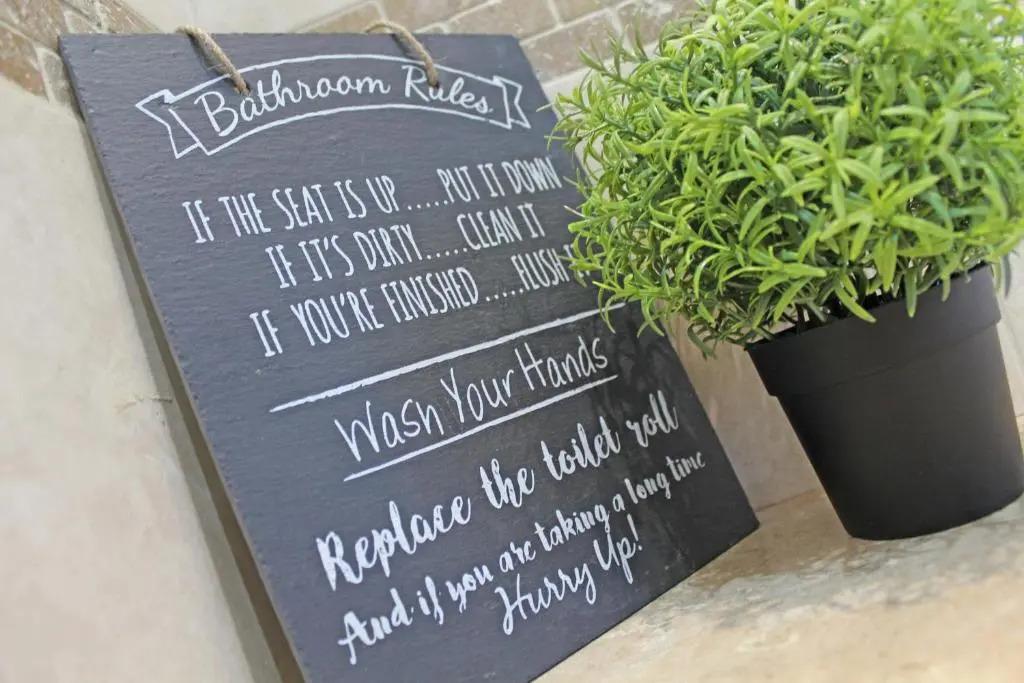 Bathroom Rules
IF THE SEAT IS UP.....PUT IT DOWN
IF IT'S DIRTY.....CLEAN IT
IF YOU'RE FINISHED.....FLUSH
Wash Your Hands
Replace the toilet roll
And if you are taking a long time
Hurry Up!